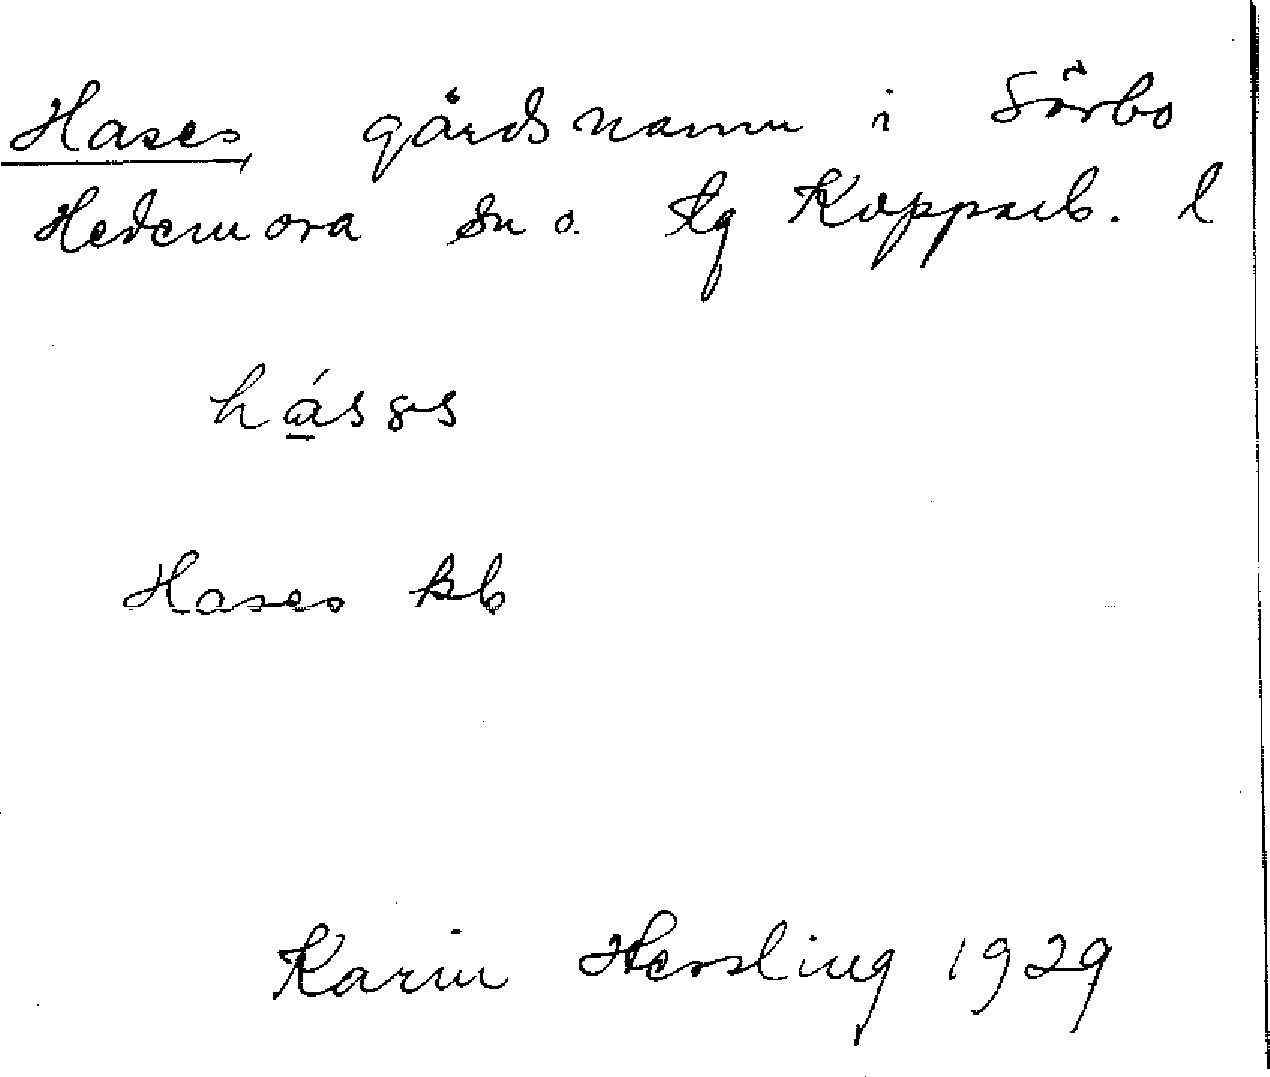 Hases, gårdsnamn i Sörbo
Hedemora sn o. tg Kopparb. l
hásəs
Hases kb
Karin Hessling 1929